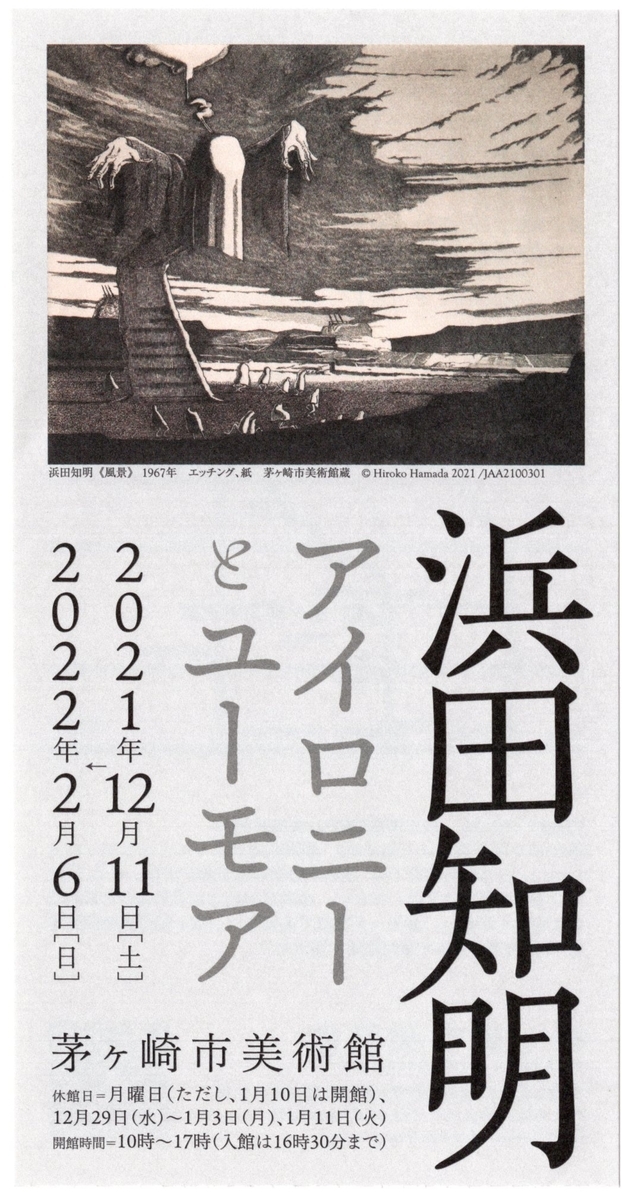 浜田知明《風景》 1967年　エッチング、紙　茅ヶ崎市美術館蔵　© Hiroko Hamada 2021 /JAA2100301
浜田知明
アイロニー
とユーモア
2021年12月11日[土]
←
2022年2月6日[日]
茅ヶ崎市美術館
休館日=月曜日(ただし、1月10日は開館)、
12月29日(水)〜1月3日(月)、1月11日(火)
開館時間=10時〜17時(入館は16時30分まで)